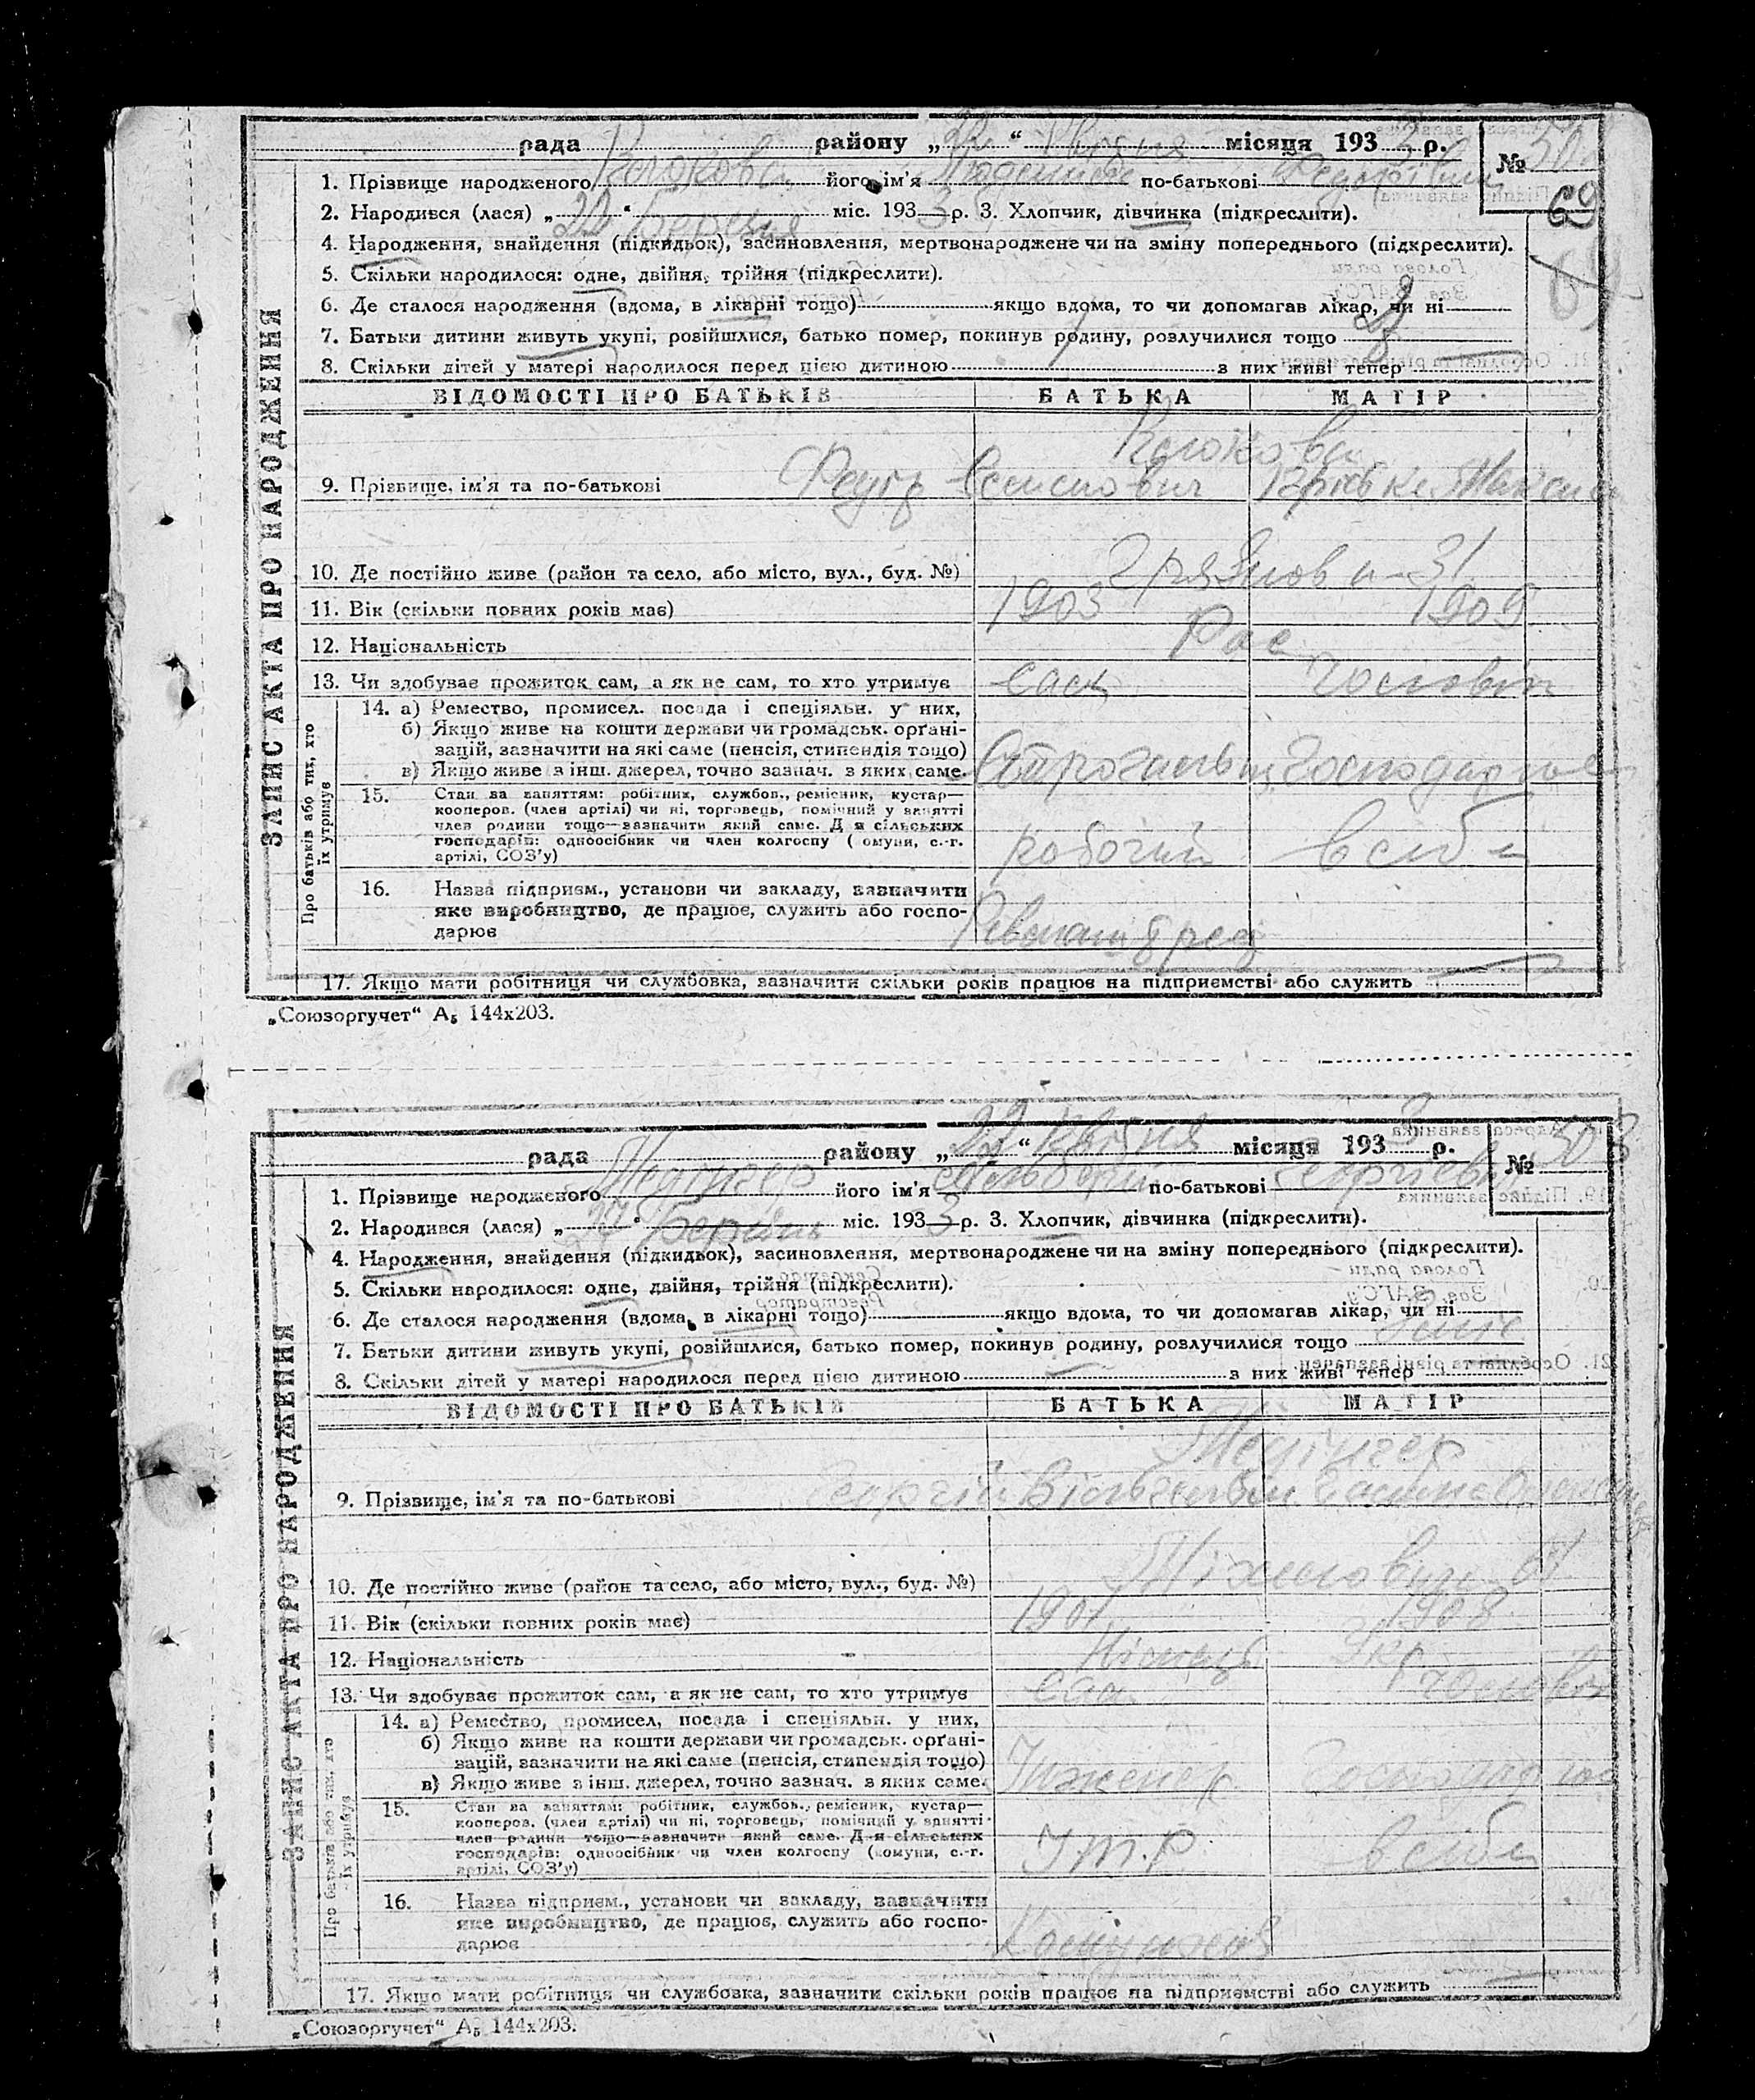 рада района „22" Квітня місяця 193 3 р. № 502
1. Прізвище народженого Клюкова його ім'я по-батькові Федорівна
69
2. Народився (лася) „22" Березня міс. 193 3 р. 3. Хлопчик, дівчинка (підкреслити).
4. Народження, знайдення (підкидьок), засиновлення, мертвонароджене чи на зміну попереднього (підкреслити).
5. Скільки народилося: одне, двійня, трійня (підкреслити).
6. Де сталося народження (вдома, в лікарні тощо) якщо вдома, то чи допомагав лікар, чи ні
7. Батьки дитини живуть укупі, розійшлися, батько помер, покинув родину, розлучилися тощо
8. Скільки дітей у матері народилося перед цією дитиною з них живі тепер
ВІДОМОСТІ ПРО БАТЬКІВ БАТЬКА МАТІР
Клюкова
9. Прізвище, ім'я та по-батькові Федір
10. Де постійно живе (район та село, або місто, вул., буд. №) 31
11. Вік (скільки повних років має) 1903 1905
12. Національність Рос
13. Чи здобуває прожиток сам, а як не сам, то хто утримує сам чоловік
14. а) Ремество, промисел, посада і спеціяльн. у них,
б) Якщо живе на кошти держави чи громадськ. орґані-
зацій, зазначити на які саме (пенсія, стипендія тощо)
в) Якщо живе з інш. джерел, точно зазнач. з яких саме.
15. Стан за заняттям: робітник, службов., ремісник, кустар—
кооперов. (член артілі) чи ні, торговець, помічний у занятті
член родини тощо—зазначити який саме. Д я сільських
господарів: одноосібник чи член колгоспу ( омуни, с.-г.
артілі, СОЗ'у)
робочий
16. Назва підприєм., установи чи закладу, зазначити
яке виробництво, де працює, служить або госпо-
дарює
17. Якщо мати робітниця чи службовка, зазначити скільки років працює на підприємстві або служить
ЗАПИС АКТА ПРО НАРОДЖЕННЯ
Про батьків або тих, хто
їх утримує
„Союзоргучет" А₅ 144х203.
рада району „22" Квітня місяця 193 3 р. № 503
1. Прізвище народженого його ім'я по-батькові Георгієвич
2. Народився (лася) „27" Березень міс. 193 3 р. 3. Хлопчик, дівчинка (підкреслити).
4. Народження, знайдення (підкидьок), засиновлення, мертвонароджене чи на зміну попереднього (підкреслити).
5. Скільки народилося: одне, двійня, трійня (підкреслити).
6. Де сталося народження (вдома, в лікарні тощо) якщо вдома, то чи допомагав лікар, чи ні
7. Батьки дитини живуть укупі, розійшлися, батько помер, покинув родину, розлучилися тощо
8. Скільки дітей у матері народилося перед цією дитиною з них живі тепер
ВІДОМОСТІ ПРО БАТЬКІВ БАТЬКА МАТІР
9. Прізвище, ім'я та по-батькові Георгій
10. Де постійно живе (район та село, або місто, вул., буд. №)
11. Вік (скільки повних років має) 1901 1908
12. Національність Німець Укр
13. Чи здобуває прожиток сам, а як не сам, то хто утримує сам чоловік
14. а) Ремество, промисел, посада і спеціяльн. у них,
б) Якщо живе на кошти держави чи громадськ. орґані-
зацій, зазначити на які саме (пенсія, стипендія тощо)
в) Якщо живе з інш. джерел, точно зазнач. з яких саме.
Інженер
15. Стан за заняттям: робітник, службов., ремісник, кустар—
кооперов. (член артілі) чи ні, торговець, помічний у занятті
член родини тощо—зазначити який саме. Д я сільських
господарів: одноосібник чи член колгоспу (комуни, с.-г.
артілі, СОЗ'у)
І.Т.Р
16. Назва підприєм., установи чи закладу, зазначити
яке виробництво, де працює, служить або госпо-
дарює
17. Якщо мати робітниця чи службовка, зазначити скільки років працює на підприємстві або служить
ЗАПИС АКТА ПРО НАРОДЖЕННЯ
Про батьків або тих, хто
їх утримує
„Союзоргучет" А₅ 144х203.